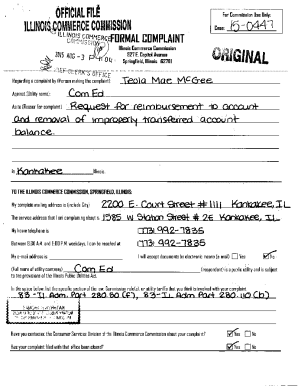 OFFICIAL FILE
ILLINOIS COMMERCE COMMISSION
For Commission Use Only:
Case: 15-0447
ILLINOIS COMMERCE COMMISSION
FORMAL COMPLAINT
2015 AUG -3
CLERK'S OFFICE
Illinois Commerce Commission
527 E. Capitol Avenue
Springfield, Illinois 62701
ORIGINAL
Regarding a complaint by (Person making the complaint): Teola Mae McGee
Against (Utility name): Com Ed
As to (Reason for complaint) Request for reimbursement to account
and removal of improperly transferred account
balance.
in Kankakee Illinois.
TO THE ILLINOIS COMMERCE COMMISSION, SPRINGFIELD, ILLINOIS:
My complete mailing address is (include City) 2200 E. Court Street # 1111 Kankakee, IL
The service address that I am complaining about is 1985 W Station Street # 26 Kankakee, IL
My home telephone is (773) 992-7835
Between 8:30 A.M. and 5:00 P.M. weekdays, I can be reached at (773) 992-7835
My e-mail address is I will accept documents by electronic means (e-mail) Yes No
(Full name of utility company) Com Ed (respondent) is a public utility and is subject
to the provisions of the Illinois Public Utilities Act.
In the space below, list the specific section of the law, Commission rule(s), or utility tariffs that you think is involved with your complaint.
83-IL Adm. Part 280.80 (F), 83-IL Adm Part 280.110 (b)
Have you contacted the Consumer Services Division of the Illinois Commerce Commission about your complaint? Yes No
Has your complaint filed with that office been closed? Yes No